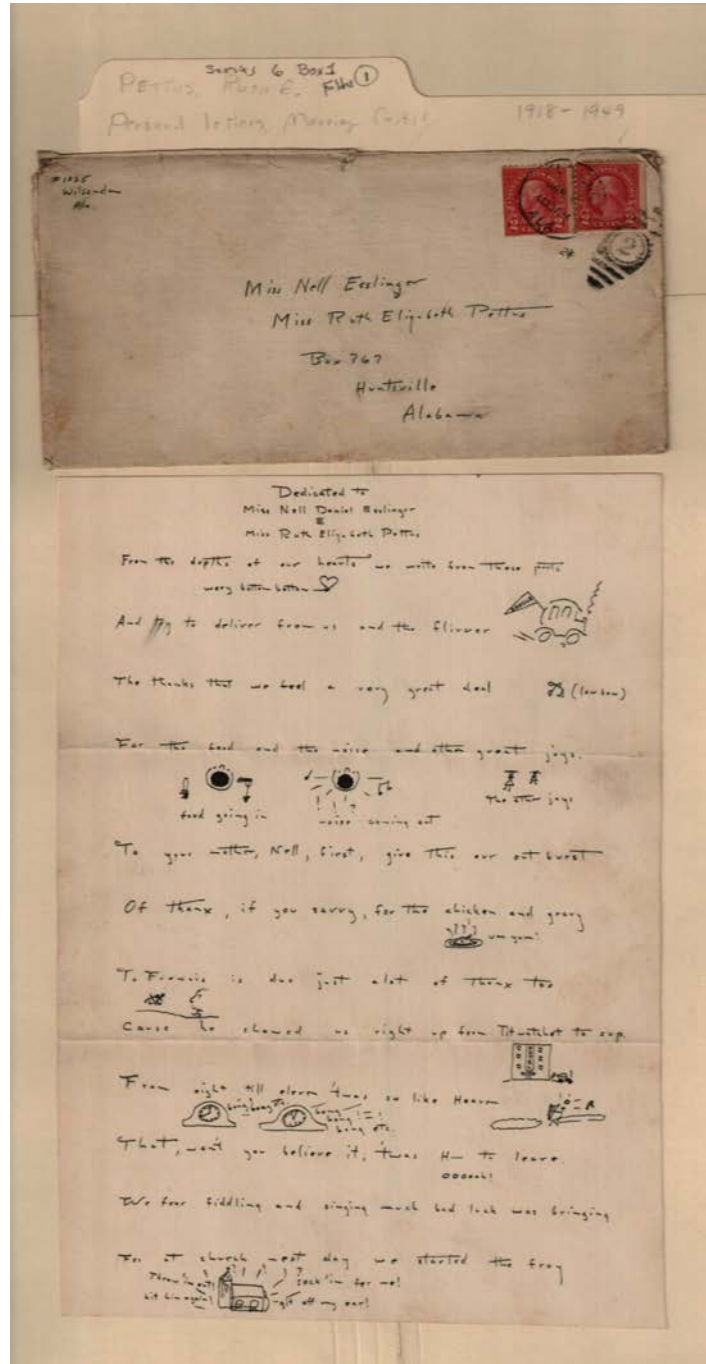 Series 6 Box 1
PETTUS, RUTH E. File ①
Personal letters,
1918-1949
#1025
Wilsonda
Ala.
24
Miss Nell Esslinger
Miss Ruth Elizabeth Pettus
Box 767
Huntsville
Alabama
Dedicated to
Miss Nell Daniel Esslinger
&
Miss Ruth Elizabeth Pettus
From the depths of our hearts we write from these parts
wery bottom bottom
And try to deliver from us and the flivver
The thanks that we feel a very great deal (low bow)
For the food and the noise and other great joys.
food going in
! ! ?
noise coming out
The other joys
To your mother, Nell, first, give this our outburst
Of thanx, if you savvy, for the chicken and gravy
um yum!
To Francis is due just alot of thanx too
Cause he showed us right up from to sup.
From eight till eleven 'twas so like Heaven
bong bong etc.
bong
bong
bong etc.
That, won't you believe it, 'twas H— to leave.
ooooh!
We fear fiddling and singing much bad luck was bringing
For at church next day we started the fray
Throw 'im out!
sock 'im for me!
hit him again!
git off my ear!